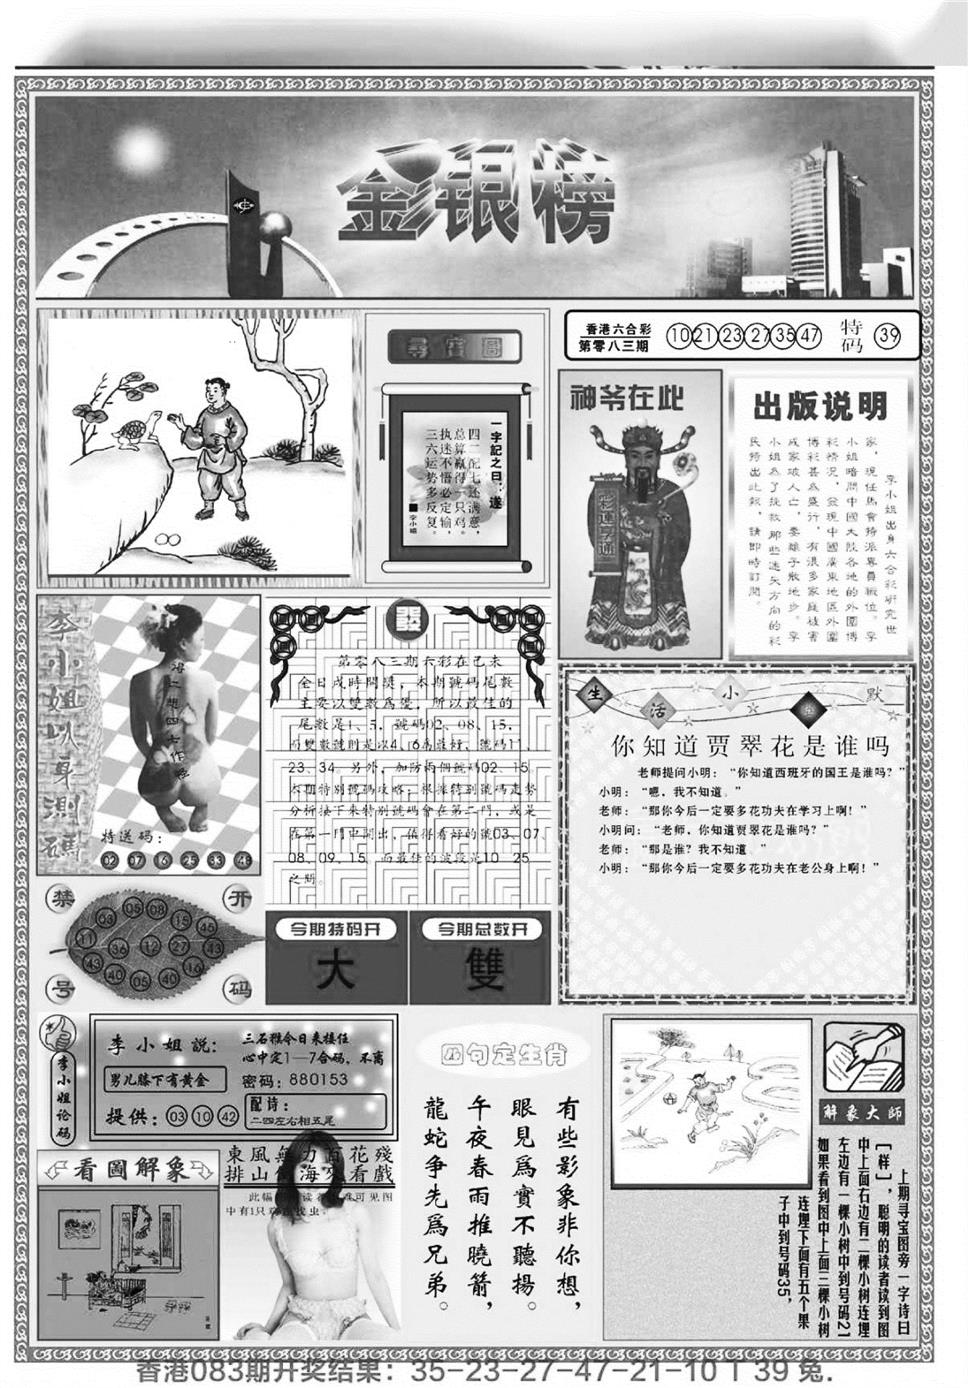 金银榜
香港六合彩
第零八三期
10 21 23 27 35 47 特码 39
尋寶圖
一字記之曰：遂
四二配七还满意，
总算赢得一只鸡。
执迷不悟必定输，
三六运势多反复。
■李小姐
神爷在此
出版说明
李小姐出身六合彩研究世
家，現任馬會特派專員職位。李
小姐暗間中國大陸各地的外圍博
彩情況，發現中國廣東地區外圍
博彩甚為盛行，有很多家庭被害
成家破人亡，妻離子散地步。李
小姐為了挽救那些迷失方向的彩
民特出此報，請即時訂閱。
李小姐以身測碼
特送码：
02 07 16 25 33 48
第零八三期六彩在己未
金日戌時開獎，本期號碼尾數
主要以雙數為優，所以最佳的
尾數是1、5，號碼02、08、15，
而雙數號則是以4、6為最好，號碼11、
23、34。另外，加防兩個號碼02、15。
本期特别號碼攻略：根據特别號碼走勢
分析接下來特别號碼會在第二門，或是
在第一門中開出，值得看好的號03、07、
08、09、15，而最佳的波段是10—25
之間。
生活小幽默
你知道贾翠花是谁吗
老师提问小明：“你知道西班牙的国王是谁吗？”
小明：“嗯，我不知道。”
老师：“那你今后一定要多花功夫在学习上啊！”
小明问：“老师，你知道贾翠花是谁吗？”
老师：“那是谁？我不知道。”
小明：“那你今后一定要多花功夫在老公身上啊！”
禁号开码
03 05 08 15 46
11 36 12 27 43
43 40 05 40 16
今期特码开
大
今期总数开
雙
李小姐论码
李小姐説：
男儿膝下有黄金
提供：03 10 42
三石推今日来接任
心中定1—7合码，不离
密码：880153
配诗：
二四左右相五尾
看圖解象
東風無力百花殘
排山倒海來看戲
四句定生肖
有些影象非你想，
眼見爲實不聽揚。
午夜春雨推曉箭，
龍蛇争先爲兄弟。
解象大師
上期寻宝图旁一字诗曰
【样】，聪明的读者读到图
中上面右边有二棵小树连埋
左边有一棵小树中到号码21
如果看到图中上面三棵小树
连埋下面有五个果
子中到号码35，
香港083期开奖结果：35-23-27-47-21-10 T 39 兔.